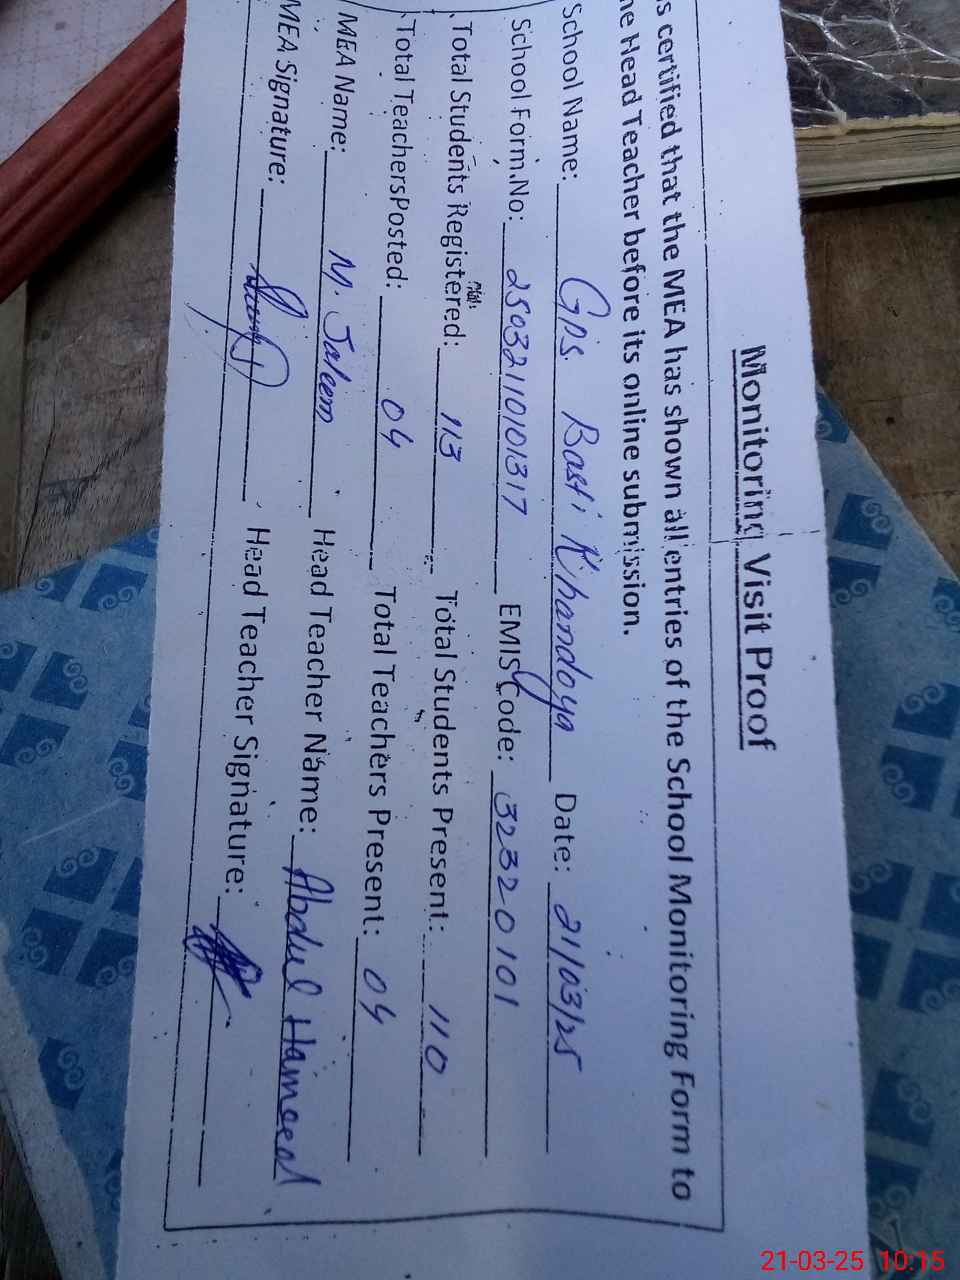 Monitoring Visit Proof
s certified that the MEA has shown all entries of the School Monitoring Form to
he Head Teacher before its online submission.
School Name: GPS Basti Khandoya Date: 21/03/25
School Form.No: 25032110101317 EMIS Code: 32320101
Total Students Registered: 113 Total Students Present: 110
Total Teachers Posted: 04 Total Teachers Present: 04
MEA Name: M. Jaleem Head Teacher Name: Abdul Hameed
MEA Signature: Head Teacher Signature:
21-03-25 10:15